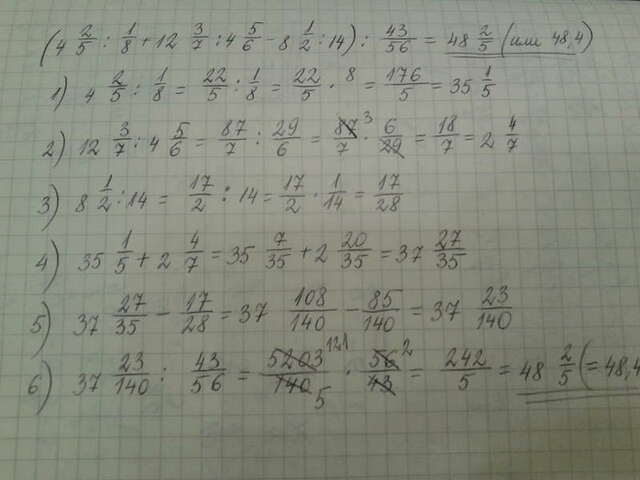 (4 2/5 : 1/8 + 12 3/7 : 4 5/6 - 8 1/2 : 14) : 43/56 = 48 2/5 (или 48,4)
1) 4 2/5 : 1/8 = 22/5 : 1/8 = 22/5 · 8 = 176/5 = 35 1/5
2) 12 3/7 : 4 5/6 = 87/7 : 29/6 = 87/7 3 · 6/29 = 18/7 = 2 4/7
3) 8 1/2 : 14 = 17/2 : 14 = 17/2 · 1/14 = 17/28
4) 35 1/5 + 2 4/7 = 35 7/35 + 2 20/35 = 37 27/35
5) 37 27/35 - 17/28 = 37 108/140 - 85/140 = 37 23/140
6) 37 23/140 : 43/56 = 5203 121/140 5 · 56 2/43 = 242/5 = 48 2/5 (= 48,4